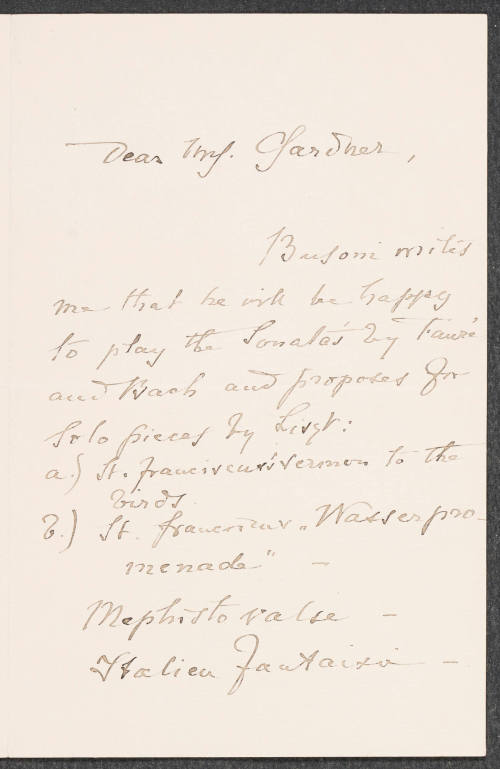 Dear Mrs. Gardner,
Busoni writes
me that he will be happy
to play the Sonates by Fauré
and Bach and proposes for
Solo pieces by Liszt:
a.) St. Franciscus's sermon to the
birds.
b.) St. Franciscus „Wasserpro-
menade" –
Mephisto valse –
Italien Fantaisie –